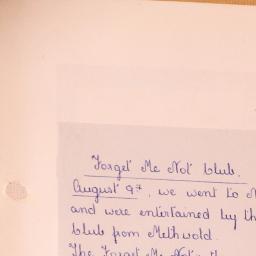 Forget Me Not Club.
August 9th, we went to
and were entertained by th
Club from Methwold.
The Forget Me Not